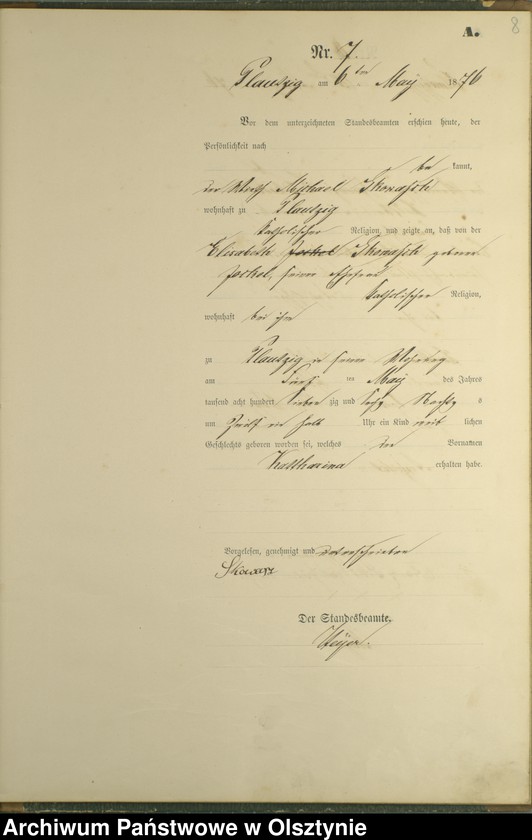 8
A.
Nr. 7.
Plauszig am 6ten May 1876
Vor dem unterzeichneten Standesbeamten erschien heute, der
Persönlichkeit nach
be kannt,
der Wirth Michael Skowasch
wohnhaft zu Plauszig
katholischer Religion, und zeigte an, daß von der
Elisabeth Jackel Skowasch geborene
Jackel, seiner Ehefrau
katholischer Religion,
wohnhaft bei ihm
zu Plauszig in seiner Wohnung
am Fünf ten May des Jahres
tausend acht hundert sieben zig und sechs Nachts
um Uhr ein Kind weib lichen
Geschlechts geboren worden sei, welches den Vornamen
Katharina erhalten habe.
Vorgelesen, genehmigt und unterschrieben
Der Standesbeamte.
Archiwum Państwowe w Olsztynie